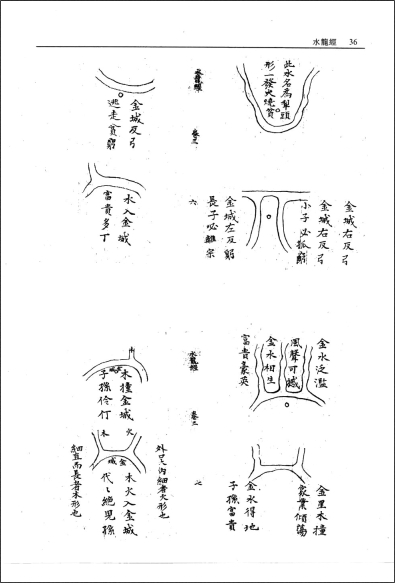 水龍經 36
此水名為犁頭
形一發火燒貧
金城右反弓
金城右反弓
小子必孤窮
金城左反躬
長子必離宗
水龍經
卷三
六
金城反弓
逃走貧窮
水入金城
富貴多丁
金水泛濫
風聲可撼
金水相生
富貴豪英
金星木撞
家業傾蕩
金水得地
子孫富貴
水龍經
卷三
七
木
木撞金城
子孫伶仃
外口大內細者火形也
火
木
金城
木火入金城
代〻絕兒孫
細直而長者木形也